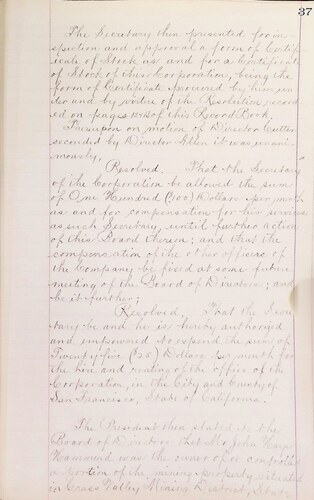 37
The Secretary then presented for in-
spection and approval a form of Certif-
icate of Stock as and for a Certificate
of Stock of this Corporation, being the
form of Certificate procured by him, un-
der and by virtue of the Resolution, record
ed on pages of this Record Book.
Thereupon on motion of Director
seconded by Director Allen it was unani-
mously,
Resolved. That the Secretary
of the Corporation be allowed the sum
of One Hundred (100) Dollars per month
as and for compensation for her services
as such Secretary, until further action
of this Board thereon; and that the
compensation of the other officers of
the Company be fixed at some future
meeting of the Board of Directors; and
be it further;
Resolved. That the Secre-
tary be and he is hereby authorized
and empowered to expend the sum of
Twenty-five ($25) Dollars per month for
the hire and renting of the office of the
Corporation, in the City and County of
San Francisco, State of California.
The President then stated to the
Board of Directors that Mr John Hays
Hammond was the owner of or controlled
a portion of the mining property situated
in Grass Valley Mining District, State